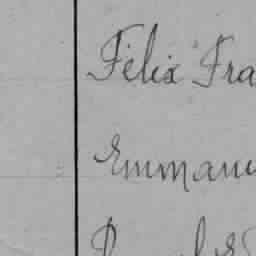 Félix Fra
Emmanu